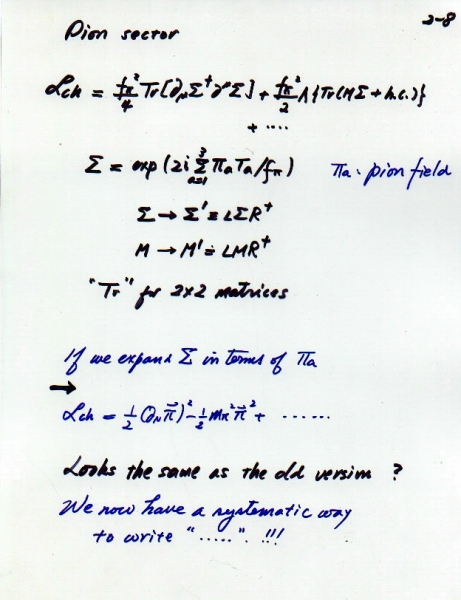 2-8
Pion sector
Lch = fπ²/4 Tr[∂μΣ†∂^μΣ] + fπ²/2 Λ{Tr(MΣ + h.c.)}
+ ....
Σ = exp(2i Σ_{a=1}^{3} πaTa/fπ)   πa · pion field
Σ → Σ' = LΣR†
M → M' = LMR†
"Tr" for 2x2 matrices
If we expand Σ in terms of πa
→
Lch = 1/2 (∂μπ⃗)² - 1/2 mπ²π⃗² + ......
Looks the same as the old version ?
We now have a systematic way
to write ".....". !!!